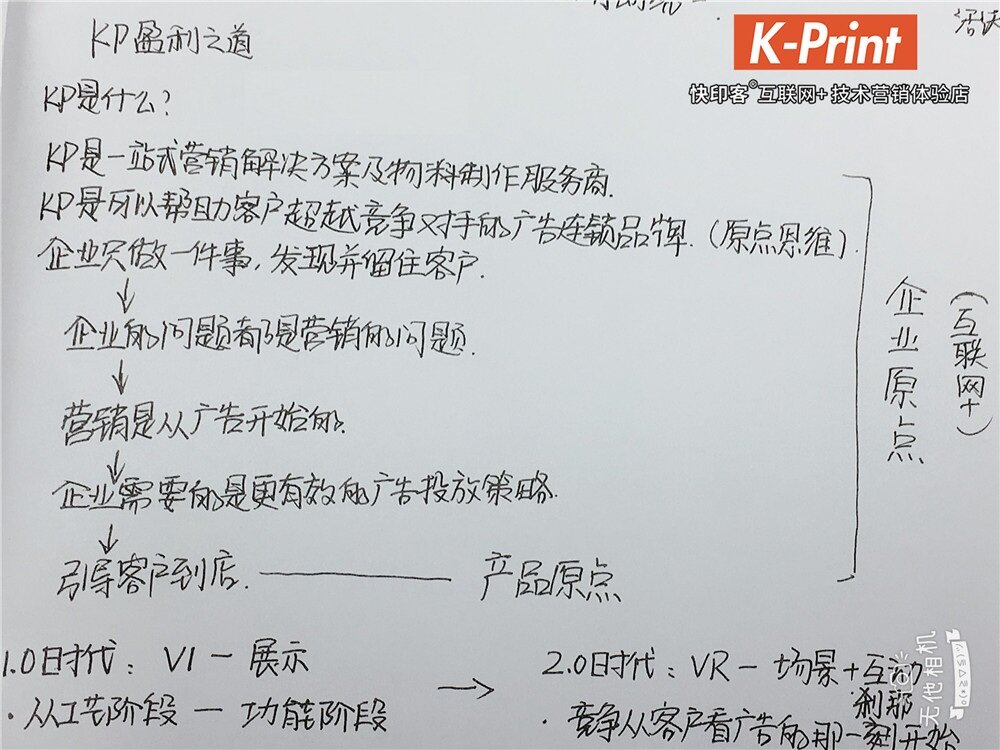 K-Print
快印客®互联网+ 技术营销体验店
KP盈利之道
KP是什么?
KP是一站式营销解决方案及物料制作服务商.
KP是可以帮助客户超越竞争对手的广告连锁品牌.(原点思维).
企业只做一件事,发现并留住客户.
企业的问题都是营销的问题.
营销是从广告开始的.
企业需要的是更有效的广告投放策略.
引导客户到店. —— 产品原点
企业原点
(互联网+)
1.0时代: VI — 展示
·从工艺阶段 — 功能阶段
2.0时代: VR — 场景+互动
刹那
·竞争从客户看广告的那一刻开始
无他相机